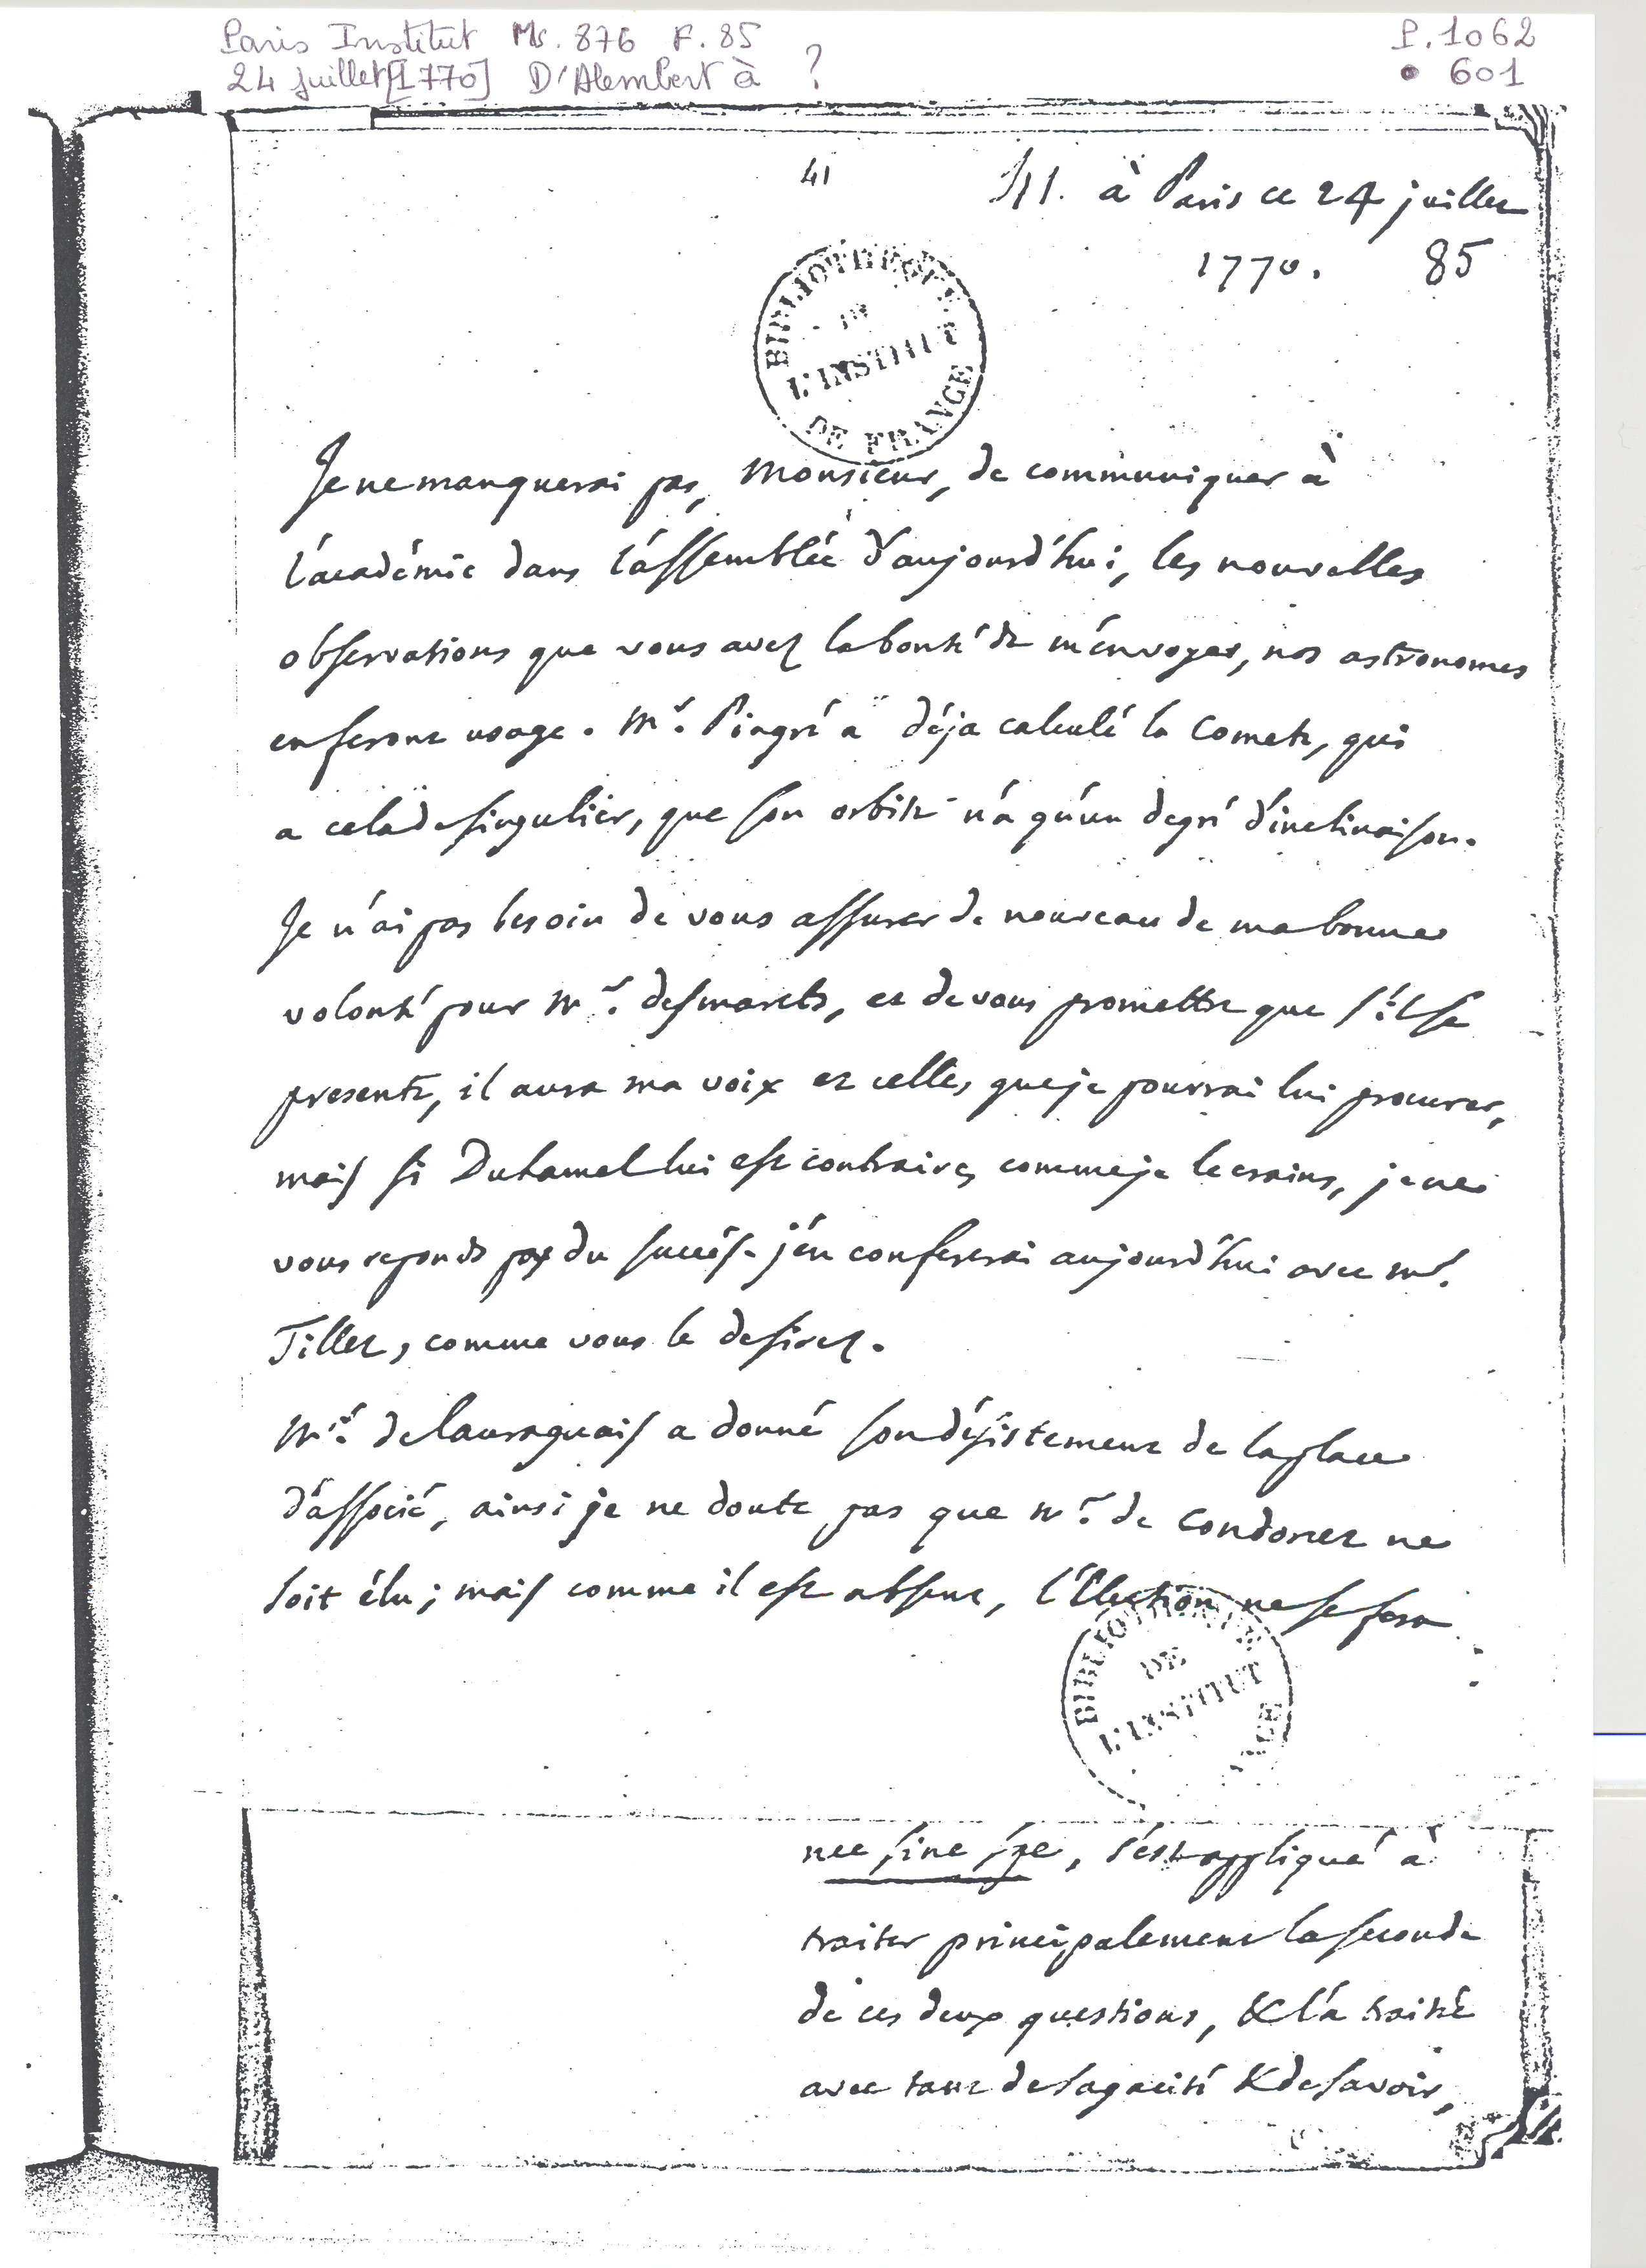 Paris Institut Ms. 876 F. 85
24 juillet [1770] D'Alembert à ?
P. 1062
601
41
41. à Paris ce 24 juillet
1770. 85
BIBLIOTHEQUE
DE
L'INSTITUT
DE FRANCE
Je ne manquerai pas, Monsieur, de communiquer à
l'académie dans l'assemblée d'aujourd'hui, les nouvelles
observations que vous avez la bonté de m'envoyer, nos astronomes
en feront usage. Mr. Pingré a déja calculé la Comete, qui
a cela de singulier, que son orbite n'a qu'un degré d'inclinaison.
Je n'ai pas besoin de vous assurer de nouveau de ma bonne
volonté pour Mr. desmarets, et de vous promettre que s'il se
presente, il aura ma voix et celles que je pourrai lui procurer,
mais si Duhamel lui est contraire, comme je le crains, je ne
vous reponds pas du succès. j'en confererai aujourd'hui avec Mr.
Tillet, comme vous le desirez.
Mr. de lauraguais a donné son désistement de la place
d'associé, ainsi je ne doute pas que Mr. de Condorcet ne
soit élu; mais comme il est absent, l'Election ne se fera
BIBLIOTHEQUE
DE
L'INSTITUT
nec sine spe, s'est appliqué à
traiter principalement la seconde
de ces deux questions, & l'a traité
avec tant de sagacité & de savoir,